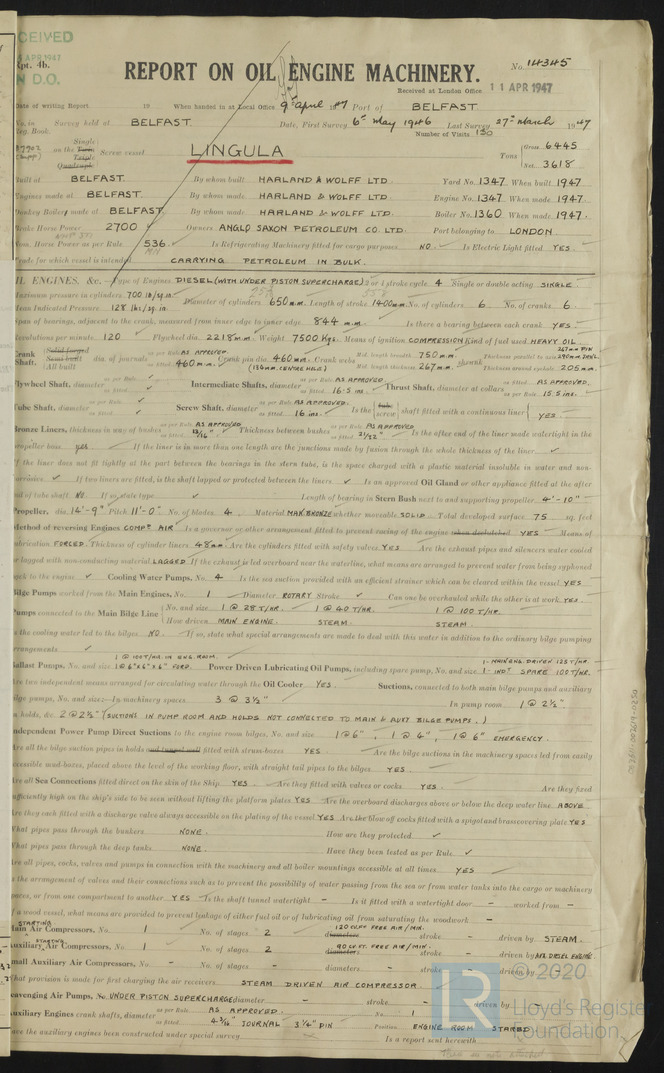 CEIVED
APR 1947
N D.O.
Rpt. 4b.
No. 14345
REPORT ON OIL ENGINE MACHINERY.
Received at London Office 11 APR 1947
Date of writing Report 19 When handed in at Local Office 9th April 1947 Port of BELFAST
No. in Survey held at BELFAST Date, First Survey 6th May 1946 Last Survey 27th March 1947
Reg. Book.
Number of Visits 130
Single
on the Twin Triple Quadruple Screw vessel LINGULA Tons Gross 6445
Net 3618
Built at BELFAST. By whom built HARLAND & WOLFF LTD. Yard No. 1347 When built 1947
Engines made at BELFAST. By whom made HARLAND & WOLFF LTD. Engine No. 1347 When made 1947
Donkey Boilers made at BELFAST By whom made HARLAND & WOLFF LTD. Boiler No. 1360 When made 1947.
Brake Horse Power 2700 Owners ANGLO SAXON PETROLEUM CO. LTD. Port belonging to LONDON
Nom. Horse Power as per Rule 536. Is Refrigerating Machinery fitted for cargo purposes NO. Is Electric Light fitted YES.
Trade for which vessel is intended CARRYING PETROLEUM IN BULK.
OIL ENGINES, &c. Type of Engines DIESEL (WITH UNDER PISTON SUPERCHARGE) 2 or 4 stroke cycle 4 Single or double acting SINGLE
Maximum pressure in cylinders 700 lb/sq.in. Diameter of cylinders 650 m.m. Length of stroke 1400 m.m. No. of cylinders 6 No. of cranks 6.
Mean Indicated Pressure 128 lbs/sq.in.
Span of bearings, adjacent to the crank, measured from inner edge to inner edge 844 m.m. Is there a bearing between each crank YES.
Revolutions per minute 120 Flywheel dia. 2218 m.m. Weight 7500 Kgs. Means of ignition COMPRESSION Kind of fuel used HEAVY OIL
Crank Shaft, Solid forged Semi built All built dia. of journals as per Rule AS APPROVED. as fitted 460 m.m. Crank pin dia. 460 m.m. (130 m.m. CENTRE HOLE) Crank webs Mid. length breadth 750 m.m. Mid. length thickness 267 m.m. shrunk Thickness parallel to axis Thickness around eyehole 205 m.m.
Flywheel Shaft, diameter as per Rule as fitted Intermediate Shafts, diameter as per Rule AS APPROVED as fitted 16.5 ins. Thrust Shaft, diameter at collars as fitted AS APPROVED. as per Rule 15.5 ins.
Tube Shaft, diameter as per Rule as fitted Screw Shaft, diameter as per Rule AS APPROVED. as fitted 16 ins. Is the tube screw shaft fitted with a continuous liner YES.
Bronze Liners, thickness in way of bushes as per Rule AS APPROVED as fitted 13/16" Thickness between bushes as per Rule AS APPROVED as fitted 21/32" Is the after end of the liner made watertight in the
propeller boss yes If the liner is in more than one length are the junctions made by fusion through the whole thickness of the liner
If the liner does not fit tightly at the part between the bearings in the stern tube, is the space charged with a plastic material insoluble in water and non-
corrosive If two liners are fitted, is the shaft lapped or protected between the liners Is an approved Oil Gland or other appliance fitted at the after
end of tube shaft NO. If so, state type Length of bearing in Stern Bush next to and supporting propeller 4'-10"
Propeller, dia. 14'-9" Pitch 11'-0" No. of blades 4 Material MAN. BRONZE whether moveable SOLID Total developed surface 75 sq. feet
Method of reversing Engines COMPD. AIR Is a governor or other arrangement fitted to prevent racing of the engine when declutched YES Means of
lubrication FORCED. Thickness of cylinder liners 48 m.m. Are the cylinders fitted with safety valves YES Are the exhaust pipes and silencers water cooled
or lagged with non-conducting material LAGGED If the exhaust is led overboard near the waterline, what means are arranged to prevent water from being syphoned
back to the engine Cooling Water Pumps, No. 4 Is the sea suction provided with an efficient strainer which can be cleared within the vessel YES
Bilge Pumps worked from the Main Engines, No. 1 Diameter ROTARY Stroke Can one be overhauled while the other is at work YES.
Pumps connected to the Main Bilge Line No. and size 1 @ 28 T/HR. 1 @ 40 T/HR. 1 @ 100 T/HR.
How driven MAIN ENGINE. STEAM. STEAM.
Is the cooling water led to the bilges NO. If so, state what special arrangements are made to deal with this water in addition to the ordinary bilge pumping
arrangements
1 @ 100 T/HR IN ENG. ROOM.
Ballast Pumps, No. and size 1 @ 6"x6"x6" FORD. Power Driven Lubricating Oil Pumps, including spare pump, No. and size 1- MAIN ENG. DRIVEN 123 T/HR. 1- INDT. SPARE 100 T/HR.
Are two independent means arranged for circulating water through the Oil Cooler YES. Suctions, connected to both main bilge pumps and auxiliary
bilge pumps, No. and size:—In machinery spaces 3 @ 3½" In pump room 1 @ 2½".
In holds, &c. 2 @ 2½" (SUCTIONS IN PUMP ROOM AND HOLDS NOT CONNECTED TO MAIN & AUXY BILGE PUMPS.)
Independent Power Pump Direct Suctions to the engine room bilges, No. and size 1 @ 6", 1 @ 4", 1 @ 6" EMERGENCY.
Are all the bilge suction pipes in holds and tunnel well fitted with strum-boxes YES Are the bilge suctions in the machinery spaces led from easily
accessible mud-boxes, placed above the level of the working floor, with straight tail pipes to the bilges YES.
Are all Sea Connections fitted direct on the skin of the Ship YES Are they fitted with valves or cocks YES. Are they fixed
sufficiently high on the ship's side to be seen without lifting the platform plates YES Are the overboard discharges above or below the deep water line ABOVE
Are they each fitted with a discharge valve always accessible on the plating of the vessel YES Are the blow off cocks fitted with a spigot and brass covering plate YES
What pipes pass through the bunkers NONE. How are they protected
What pipes pass through the deep tanks NONE. Have they been tested as per Rule
Are all pipes, cocks, valves and pumps in connection with the machinery and all boiler mountings accessible at all times YES
Is the arrangement of valves and their connections such as to prevent the possibility of water passing from the sea or from water tanks into the cargo or machinery
spaces, or from one compartment to another YES Is the shaft tunnel watertight — Is it fitted with a watertight door — worked from —
If a wood vessel, what means are provided to prevent leakage of either fuel oil or of lubricating oil from saturating the woodwork —
STARTING
Main Air Compressors, No. 1 No. of stages 2 diameters 120 CU.FT. FREE AIR/MIN. stroke — driven by STEAM.
STARTING
Auxiliary Air Compressors, No. 1 No. of stages 2 diameters 90 CU.FT. FREE AIR/MIN. stroke — driven by AUX. DIESEL ENGINE
Small Auxiliary Air Compressors, No. — No. of stages — diameters — stroke — driven by —
What provision is made for first charging the air receivers STEAM DRIVEN AIR COMPRESSOR.
Scavenging Air Pumps, No. UNDER PISTON SUPERCHARGE diameter — stroke — driven by —
Auxiliary Engines crank shafts, diameter as per Rule AS APPROVED. as fitted 4 3/16" JOURNAL 3¼" PIN No. 1 Position ENGINE ROOM STARBD.
Have the auxiliary engines been constructed under special survey Is a report sent herewith
002611-002619-0250
LR © 2020
Lloyd's Register
Foundation